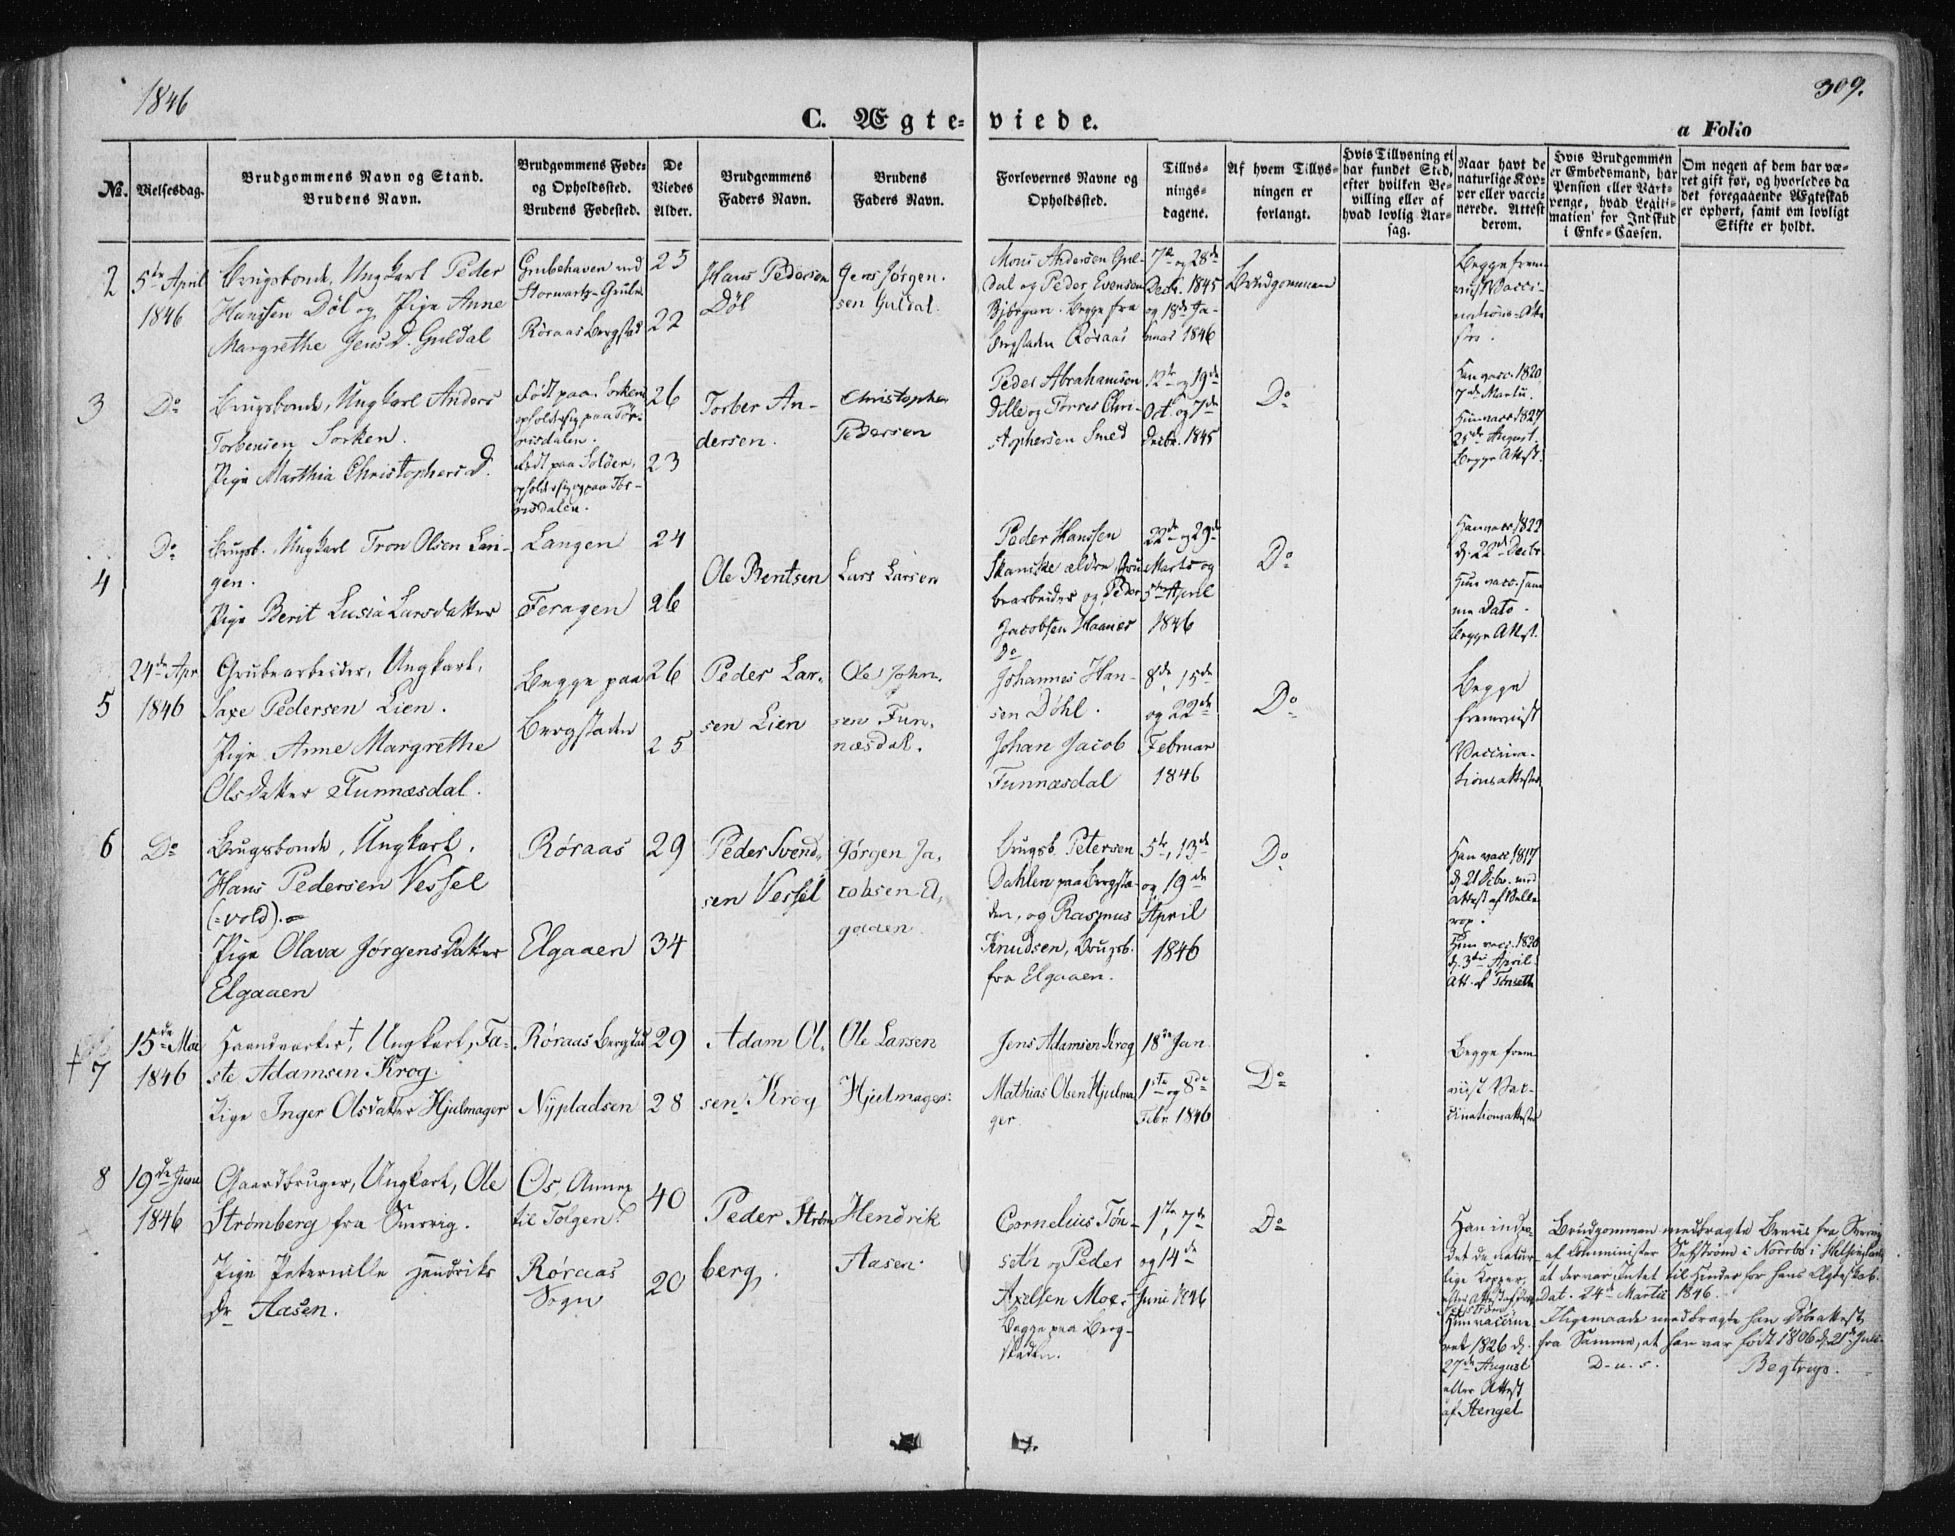 1846
309.
C. Ægte-viede.
a Folio
No.
Vielsesdag.
Brudgommens Navn og Stand.
Brudens Navn.
Brudgommens Føde-
og Opholdssted.
Brudens Fødested.
De
Viedes
Alder.
Brudgommens
Faders Navn.
Brudens
Faders Navn.
Forlovernes Navne og
Opholdssted.
Tillys-
nings-
dagene.
Af hvem Tillys-
ningen er
forlangt.
Hvis Tillysning ei
har fundet Sted,
efter hvilken Be-
villing eller af
hvad lovlig Aar-
sag.
Naar havt de
naturlige Kop-
per eller vacci-
nerede. Attest
derom.
Hvis Brudgommen
er Embedsmand, har
Pension eller Vart-
penge, hvad Legiti-
mation for Indskud
i Enke-Cassen.
Om nogen af dem har væ-
ret gift før, og hvorledes da
det foregaaende Ægteskab
er ophørt, samt om lovligt
Skifte er holdt.
2
5te April
1846
Brugsbonde, Ungkarl Peder
Hanssen Döl og Pige Anne
Margrethe Jens D. Guldal
Grubehaven ved
Storwartz-Grube
Röraas Bergstad
25
22
Hans Pedersen
Döl
Jens Jörgen-
sen Guldal.
Mons Andersen Gul-
dal og Peder Evensen
Björgan. Begge fra
Bergstaden Röraas
7de og 28de
Decbr. 1845
og 18de Ja-
nuar 1846
Brudgommen
Begge frem-
viist Vacci-
nations-Atte
ster.
3
Do
Brugsbonde, Ungkarl Anders
Torbersen Sorken.
Pige Marthia Christophers D.
Födt paa Sorken
opholder sig paa Tör-
risdalen.
Födt paa Solöer,
opholder sig paa Tör-
risdalen.
26
23
Torber An-
dersen.
Christopher
Pedersen
Peder Abrahamsen
Dille og Torres Chri-
stophersen Smed
12te og 19de
Oct. og 7de
Decbr. 1845
Do
Han vacc. 1820
7de Martii.
Hun vacc. 1827
25de August.
Begge Attest.
4
Do
Brugsb. Ungkarl Tron Olsen Lan-
gen.
Pige Berit Lusia Larsdatter
Langen
Feragen
24
26
Ole Bentsen
Lars Larsen
Peder Hanssen
Skancke ældre Gru
bearbeider og Peder
Jacobsen Haaner
Do
22de og 29de
Marts og
5te April
1846
Do
Han vacc. 1822
d. 22de Decbr.
Hun vacc. sam
me Dato.
Begge Attst.
5
24de Apr
1846
Grubearbeider, Ungkarl,
Saxe Pedersen Lien.
Pige Anne Margrethe
Olsdatter Funnæsdal.
Begge paa
Bergstaden
26
25
Peder Lar-
sen Lien
Ole John-
sen Fun-
næsdal.
Johannes Han-
sen Döhl.
Johan Jacob
Funnæsdal
8de, 15de
og 22de
Februar
1846
Do
Begge
fremviist
Vaccina-
tionsattester
6
Do
Brugsbonde, Ungkarl,
Hans Pedersen Vessel
(=vold).
Pige Olava Jörgensdatter
Elgaaen
Röraas
Elgaaen
29
34
Peder Svend-
sen Vessel
Jörgen Ja-
cobsen El-
gaaen.
Brugsb. Petersen
Dahlen paa Bergsta-
den, og Rasmus
Knudsen, Brugsb.
fra Elgaaen.
5te, 13de
og 19de
April
1846
Do
Han vacc 1817
d. 21 Octbr. med
Attest af Belle
rop.
Hun vacc. 1820
d. 3die April.
Att. af Tönseth
† 7
15de Mai
1846
Haandværker†, Ungkarl, Fa-
ste Adamsen Krog.
Pige Inger Olsdatter Hjulmager
Röraas Bergstad
Nypladsen
29
28
Adam Ol-
sen Krog
Ole Larsen
Hjulmager.
Jens Adamsen Krog
Mathias Olsen Hjulma
ger.
18de Jan.
1ste og 8de
Febr. 1846
Do
Begge frem
viist Vac-
cinationsattester
8
19de Juni
1846
Gaardbruger, Ungkarl, Ole
Strömberg fra Sverrig.
Pige Peternille Hendriks
Dr Aasen.
Os, Annex
til Tolgen.
Röraas
Sogn
40
20
Peder Ström
berg.
Hendrik
Aasen.
Cornelius Tön-
seth og Peder
Axelsen Moe.
Begge paa Berg-
staden.
1ste, 7de
og 14de
Juni 1846
Do
Han
det de natur-
lige Kopper,
efter Attest af
Hun vaccine-
ret 1826 d.
27de August
efter Attest
af Stengel
Brudgommen medbragte Beviis fra Sverrig
af Comminister Sefström i Norrbo i Helsingland
at der var Intet til Hinder for hans Ægteskab.
Dat. 24de Martii 1846.
Iligemaade medbragte han Döbeattest
fra Samme, at han var født 1806 d. 21de Juli
D. u. s. Begtrup.